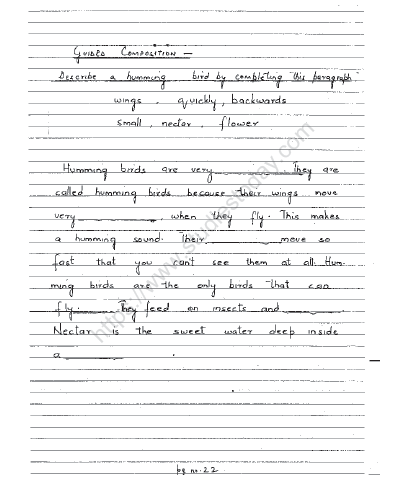 GUIDED COMPOSITION -
Describe a humming bird by completing this paragraph
wings, quickly, backwards
small, nectar, flower
Humming birds are very ________. They are
called humming birds because their wings move
very ________, when they fly. This makes
a humming sound. Their ________ move so
fast that you can't see them at all. Hum-
ming birds are the only birds that can
fly ________. They feed on insects and ________.
Nectar is the sweet water deep inside
a ________.
https://www.studiestoday.com
pg no. 22